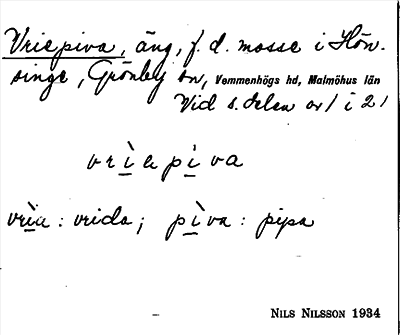 Vriepiva, äng, f. d. mosse i Hön-
singe, Grönby sn, Vemmenhögs hd, Malmöhus län
Vid s. delen av 1 i 21
vrìa pìva
vrìa : vrida; pìva : pipa
NILS NILSSON 1934